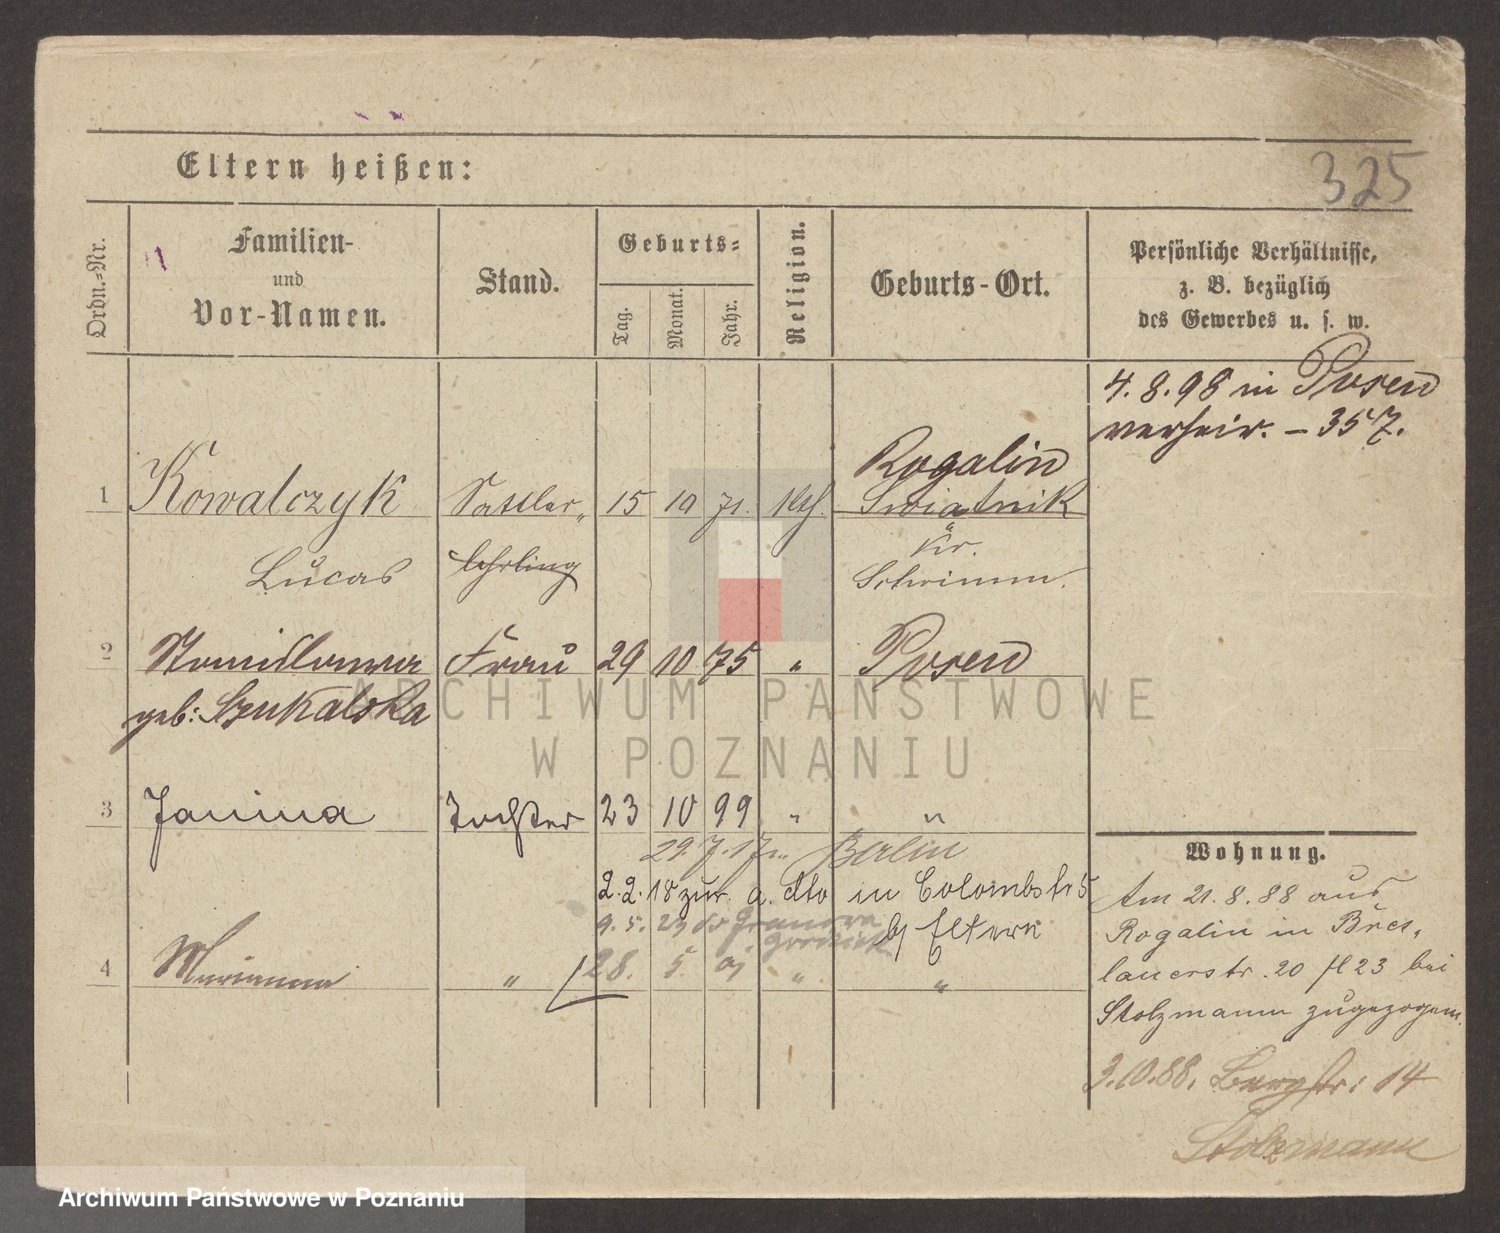 Eltern heißen:
325
Ordn.-Nr.
Familien-
und
Vor-Namen.
Stand.
Geburts-
Tag.
Monat.
Jahr.
Religion.
Geburts-Ort.
Persönliche Verhältnisse,
z. B. bezüglich
des Gewerbes u. s. w.
4. 8. 98 in Posen
verheir. – 357.
1 Kowalczyk Sattler 15 10 71. Kth. Rogalin
Swiątnik
Lucas lehrling Kr.
Schrimm.
2 Stanislawa Frau 29 10 75 " Posen
geb: Szukalska
3 Janina Tochter 23 10 99 " "
29. 7. 17 Berlin
2. 2. 18 zur. a. dto in Colombstr 5
9. 5. 23 Granowa b/ Eltern
4 Marianna " 28. 5. 01 " "
Wohnung.
Am 21. 8. 88 aus
Rogalin in Bres,
lauerstr. 20 fl 23 bei
Stolzmann zugezogen.
3. 10. 88. Bergstr: 14
Stolzmann
ARCHIWUM PAŃSTWOWE
W POZNANIU
Archiwum Państwowe w Poznaniu